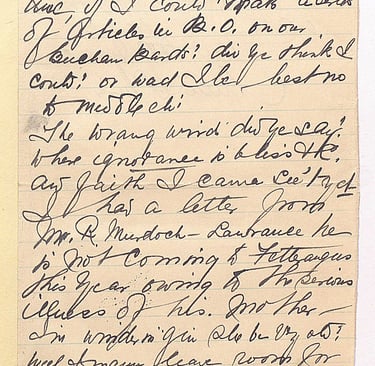 if I could mak a series
of Articles in B.O. on our
Buchan Bards? did ye think I
could? or wad I be best no
to middle ch!
The wrang wird did ye say?
Where ignorance is bliss &c.
and faith I canna see't yet
I had a letter from
Mr. R. Murdoch-Lawrance he
is not coming to Fetterangus
this year owing to the serious
illness of his mother—
I'm winderin gin she be vry old?
Weel I maun leave room for